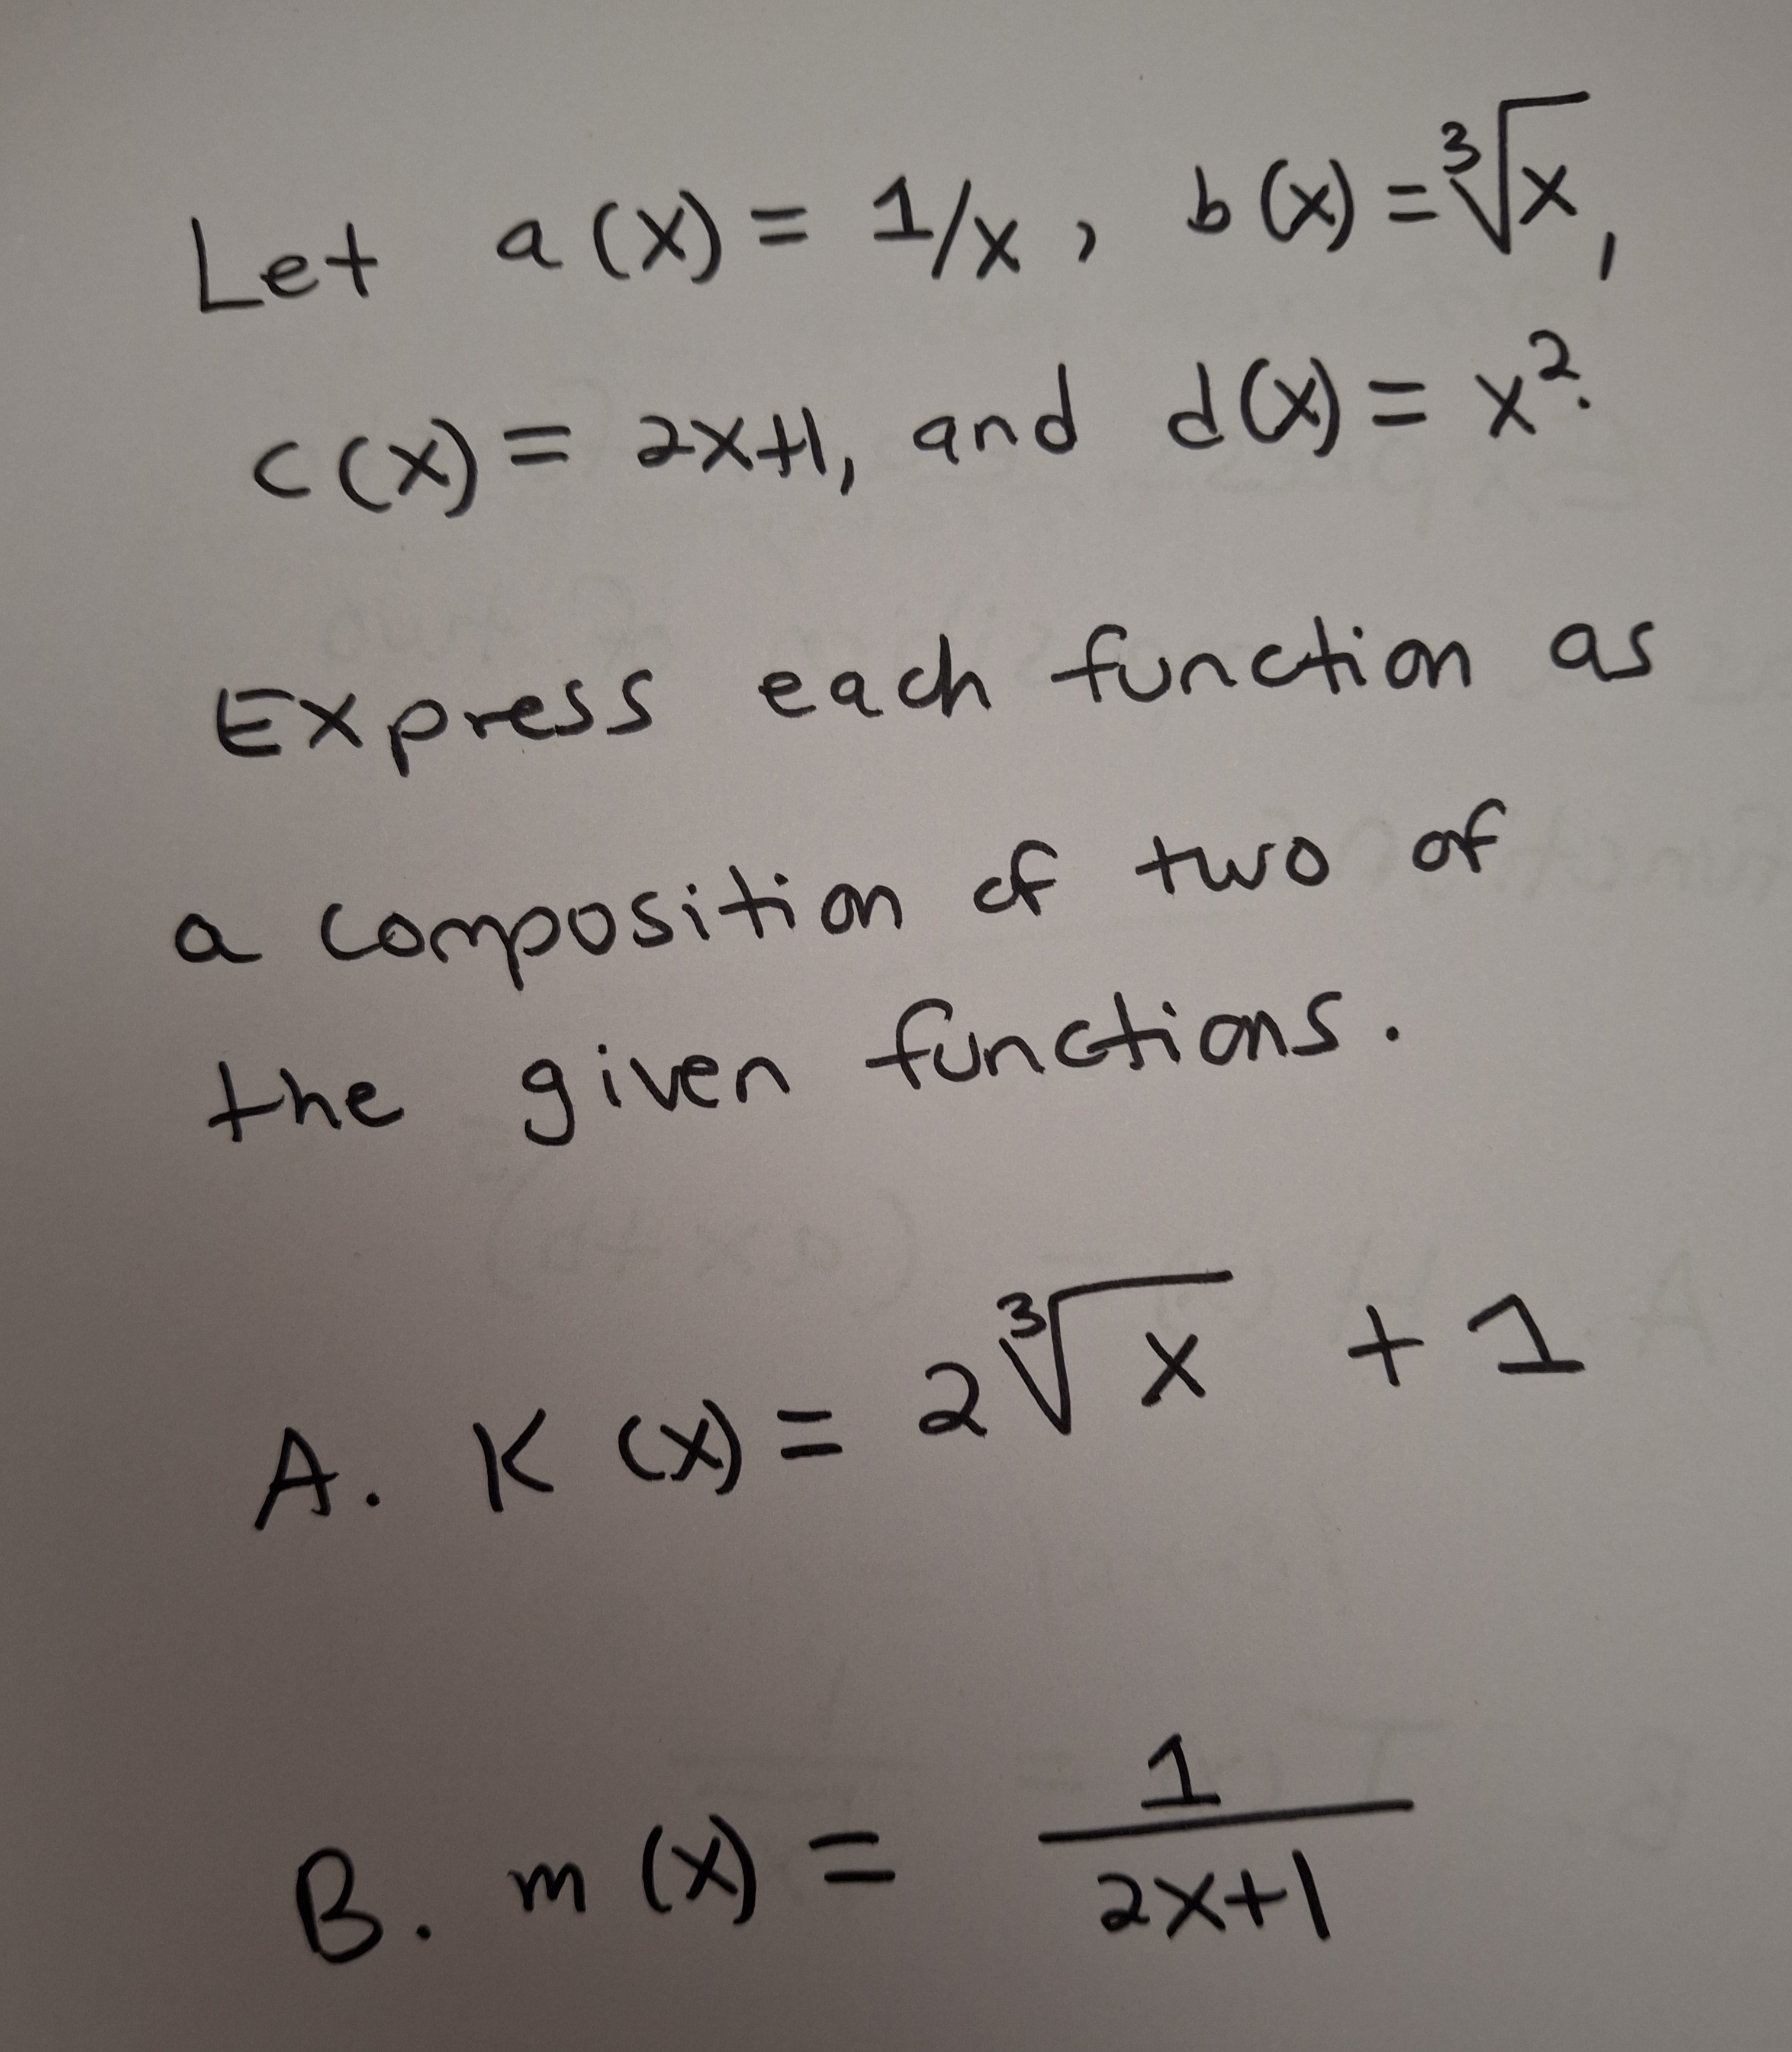 Let a(x) = 1/x, b(x) = ∛x,
c(x) = 2x+1, and d(x) = x².
Express each function as
a composition of two of
the given functions.
A. K(x) = 2∛x + 1
B. m(x) = 1/(2x+1)